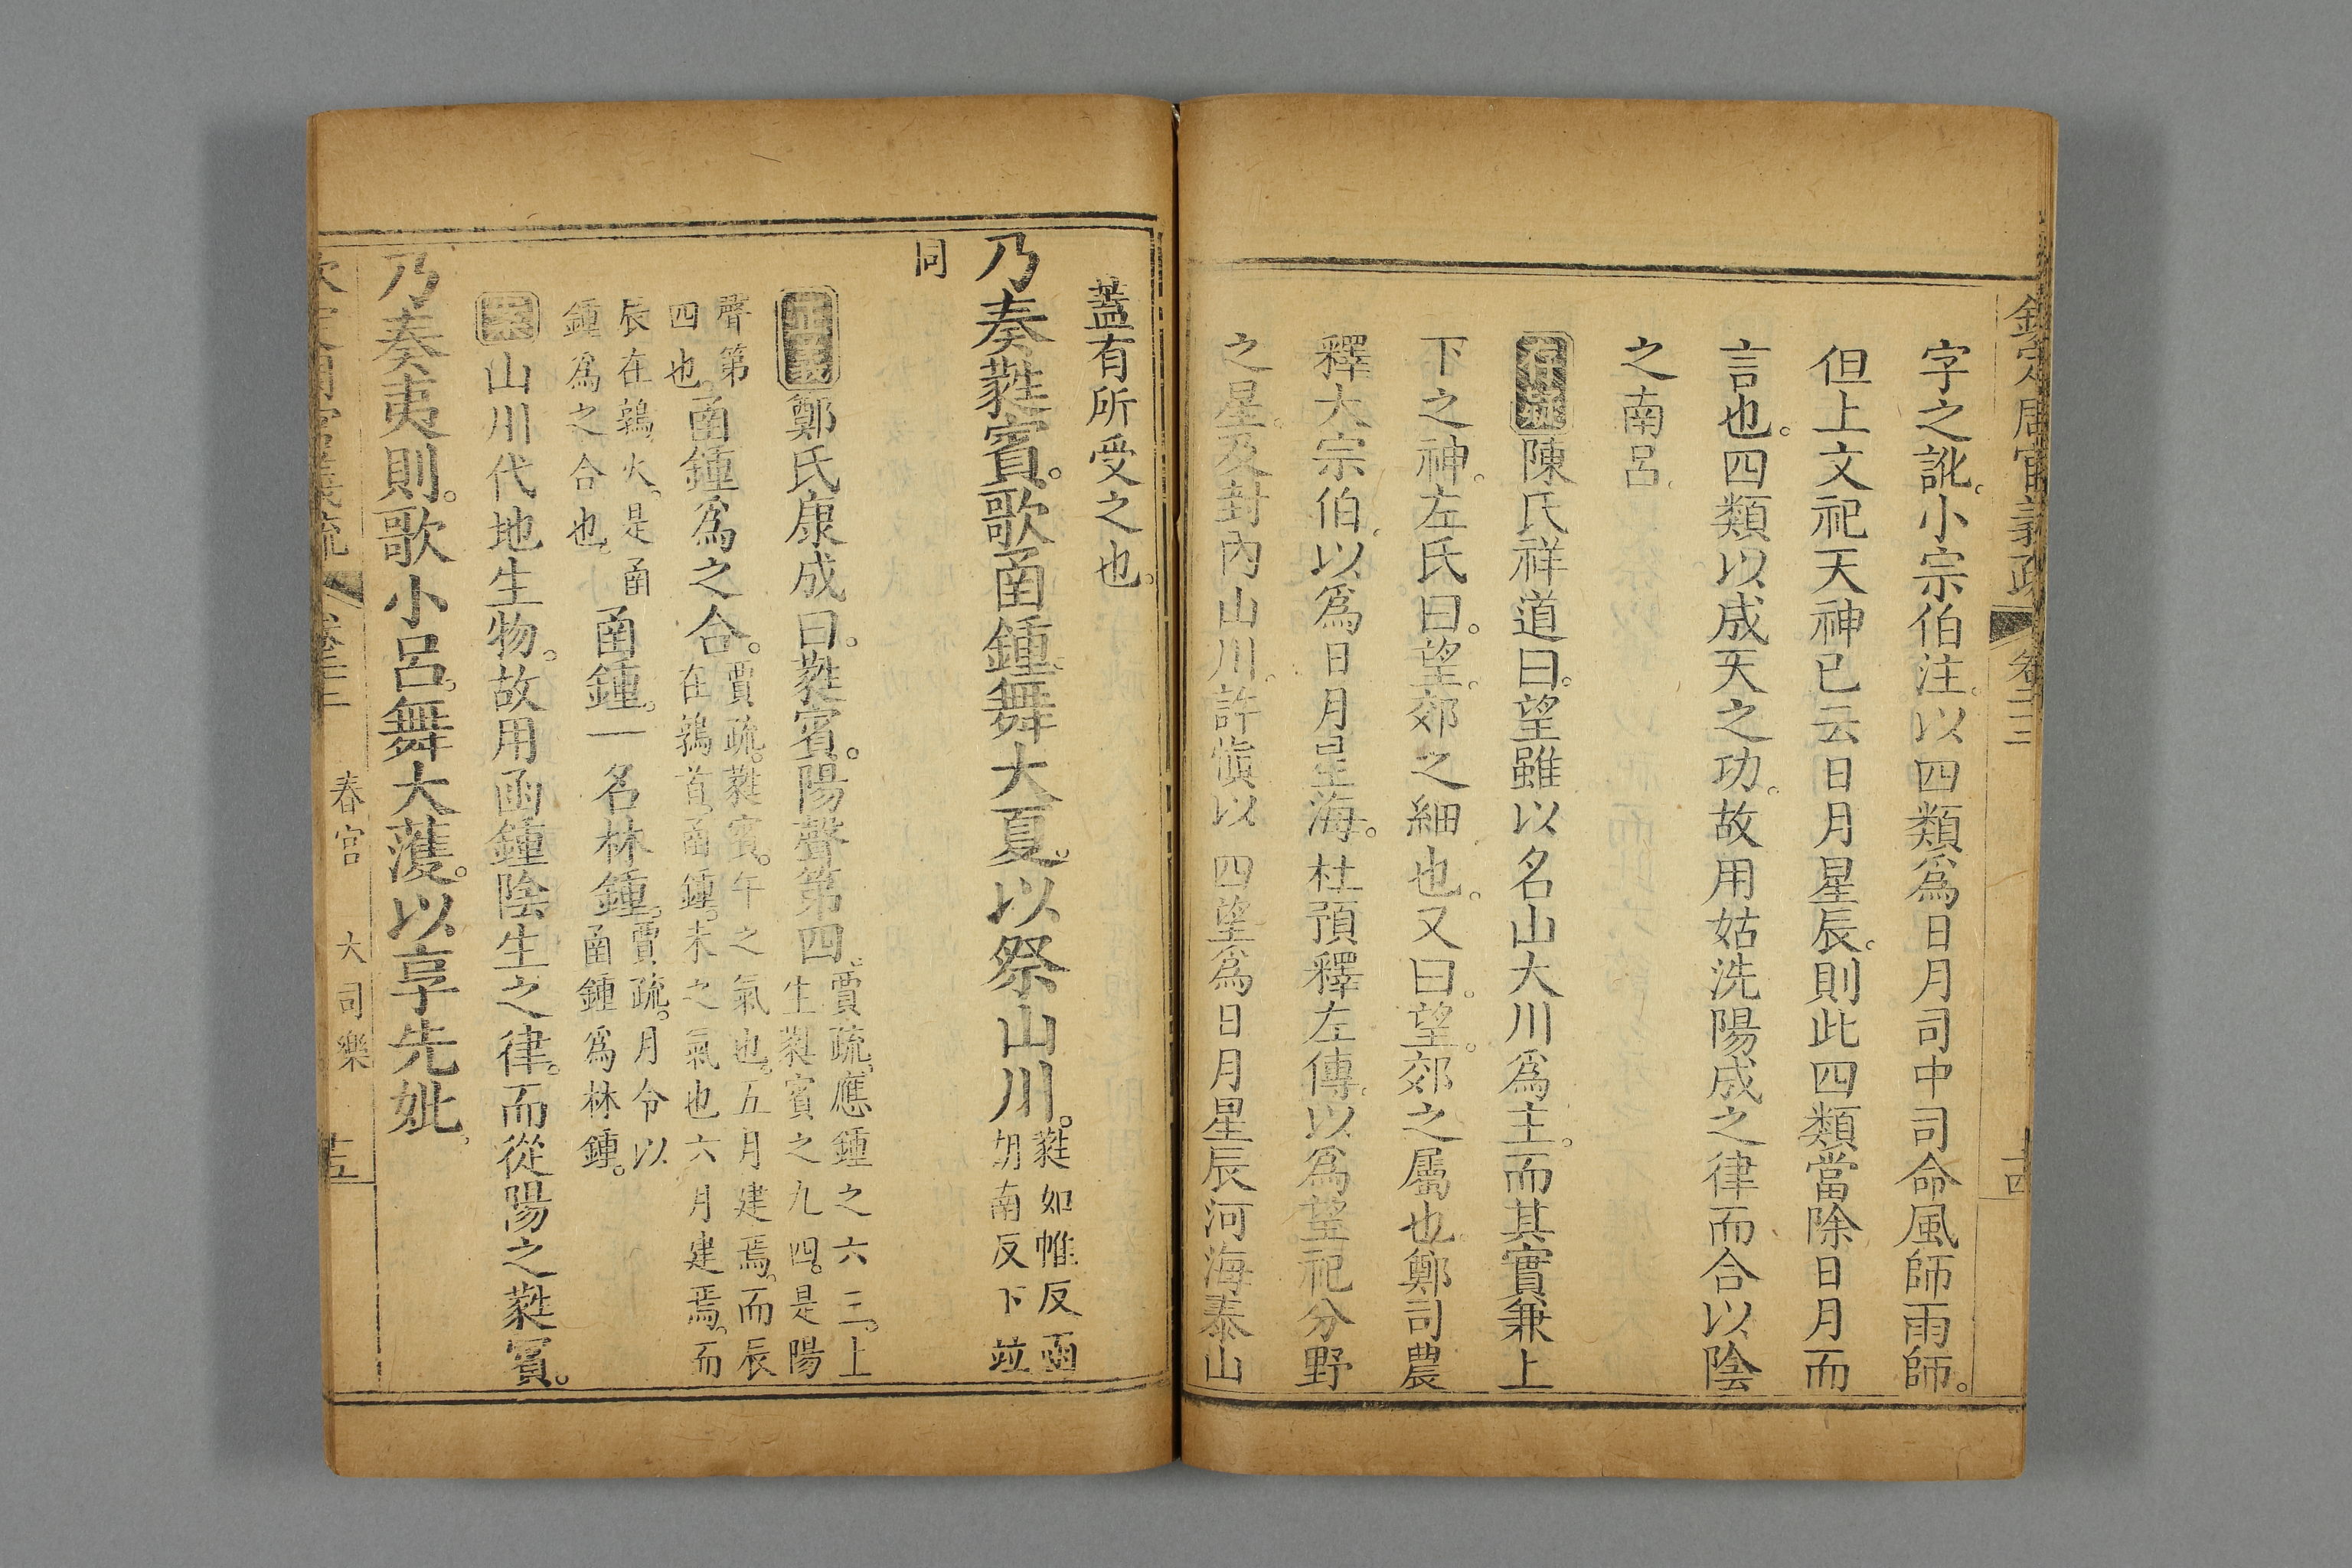 欽定周官義疏 卷二十二 十四
字之訛。小宗伯注。以四類爲日月司中司命風師雨師。
但上文祀天神已云日月星辰。則此四類當除日月而
言也。四類以成天之功。故用姑洗陽成之律而合以陰
之南呂。
陳氏祥道曰。望雖以名山大川爲主。而其實兼上
下之神。左氏曰。望。郊之細也。又曰。望。郊之屬也。鄭司農
釋大宗伯。以爲日月星海。杜預釋左傳。以爲望祀分野
之星。及封內山川。許愼以四望爲日月星辰河海泰山
蓋有所受之也。
乃奏蕤賓。歌函鍾。舞大夏。以祭山川。蕤如帷反函
胡南反下竝
同
鄭氏康成曰。蕤賓。陽聲第四。賈疏。應鍾之六三。上
生蕤賓之九四。是陽
聲第
四也。函鍾爲之合。賈疏。蕤賓。午之氣也。五月建焉。而辰
在鶉首。函鍾。未之氣也六月建焉。而
辰在鶉火。是函
鍾爲之合也。函鍾。一名林鍾。賈疏。月令以
函鍾爲林鍾。
案山川代地生物。故用函鍾陰生之律。而從陽之蕤賓。
乃奏夷則。歌小呂。舞大濩。以享先妣。
春官 大司樂 十五